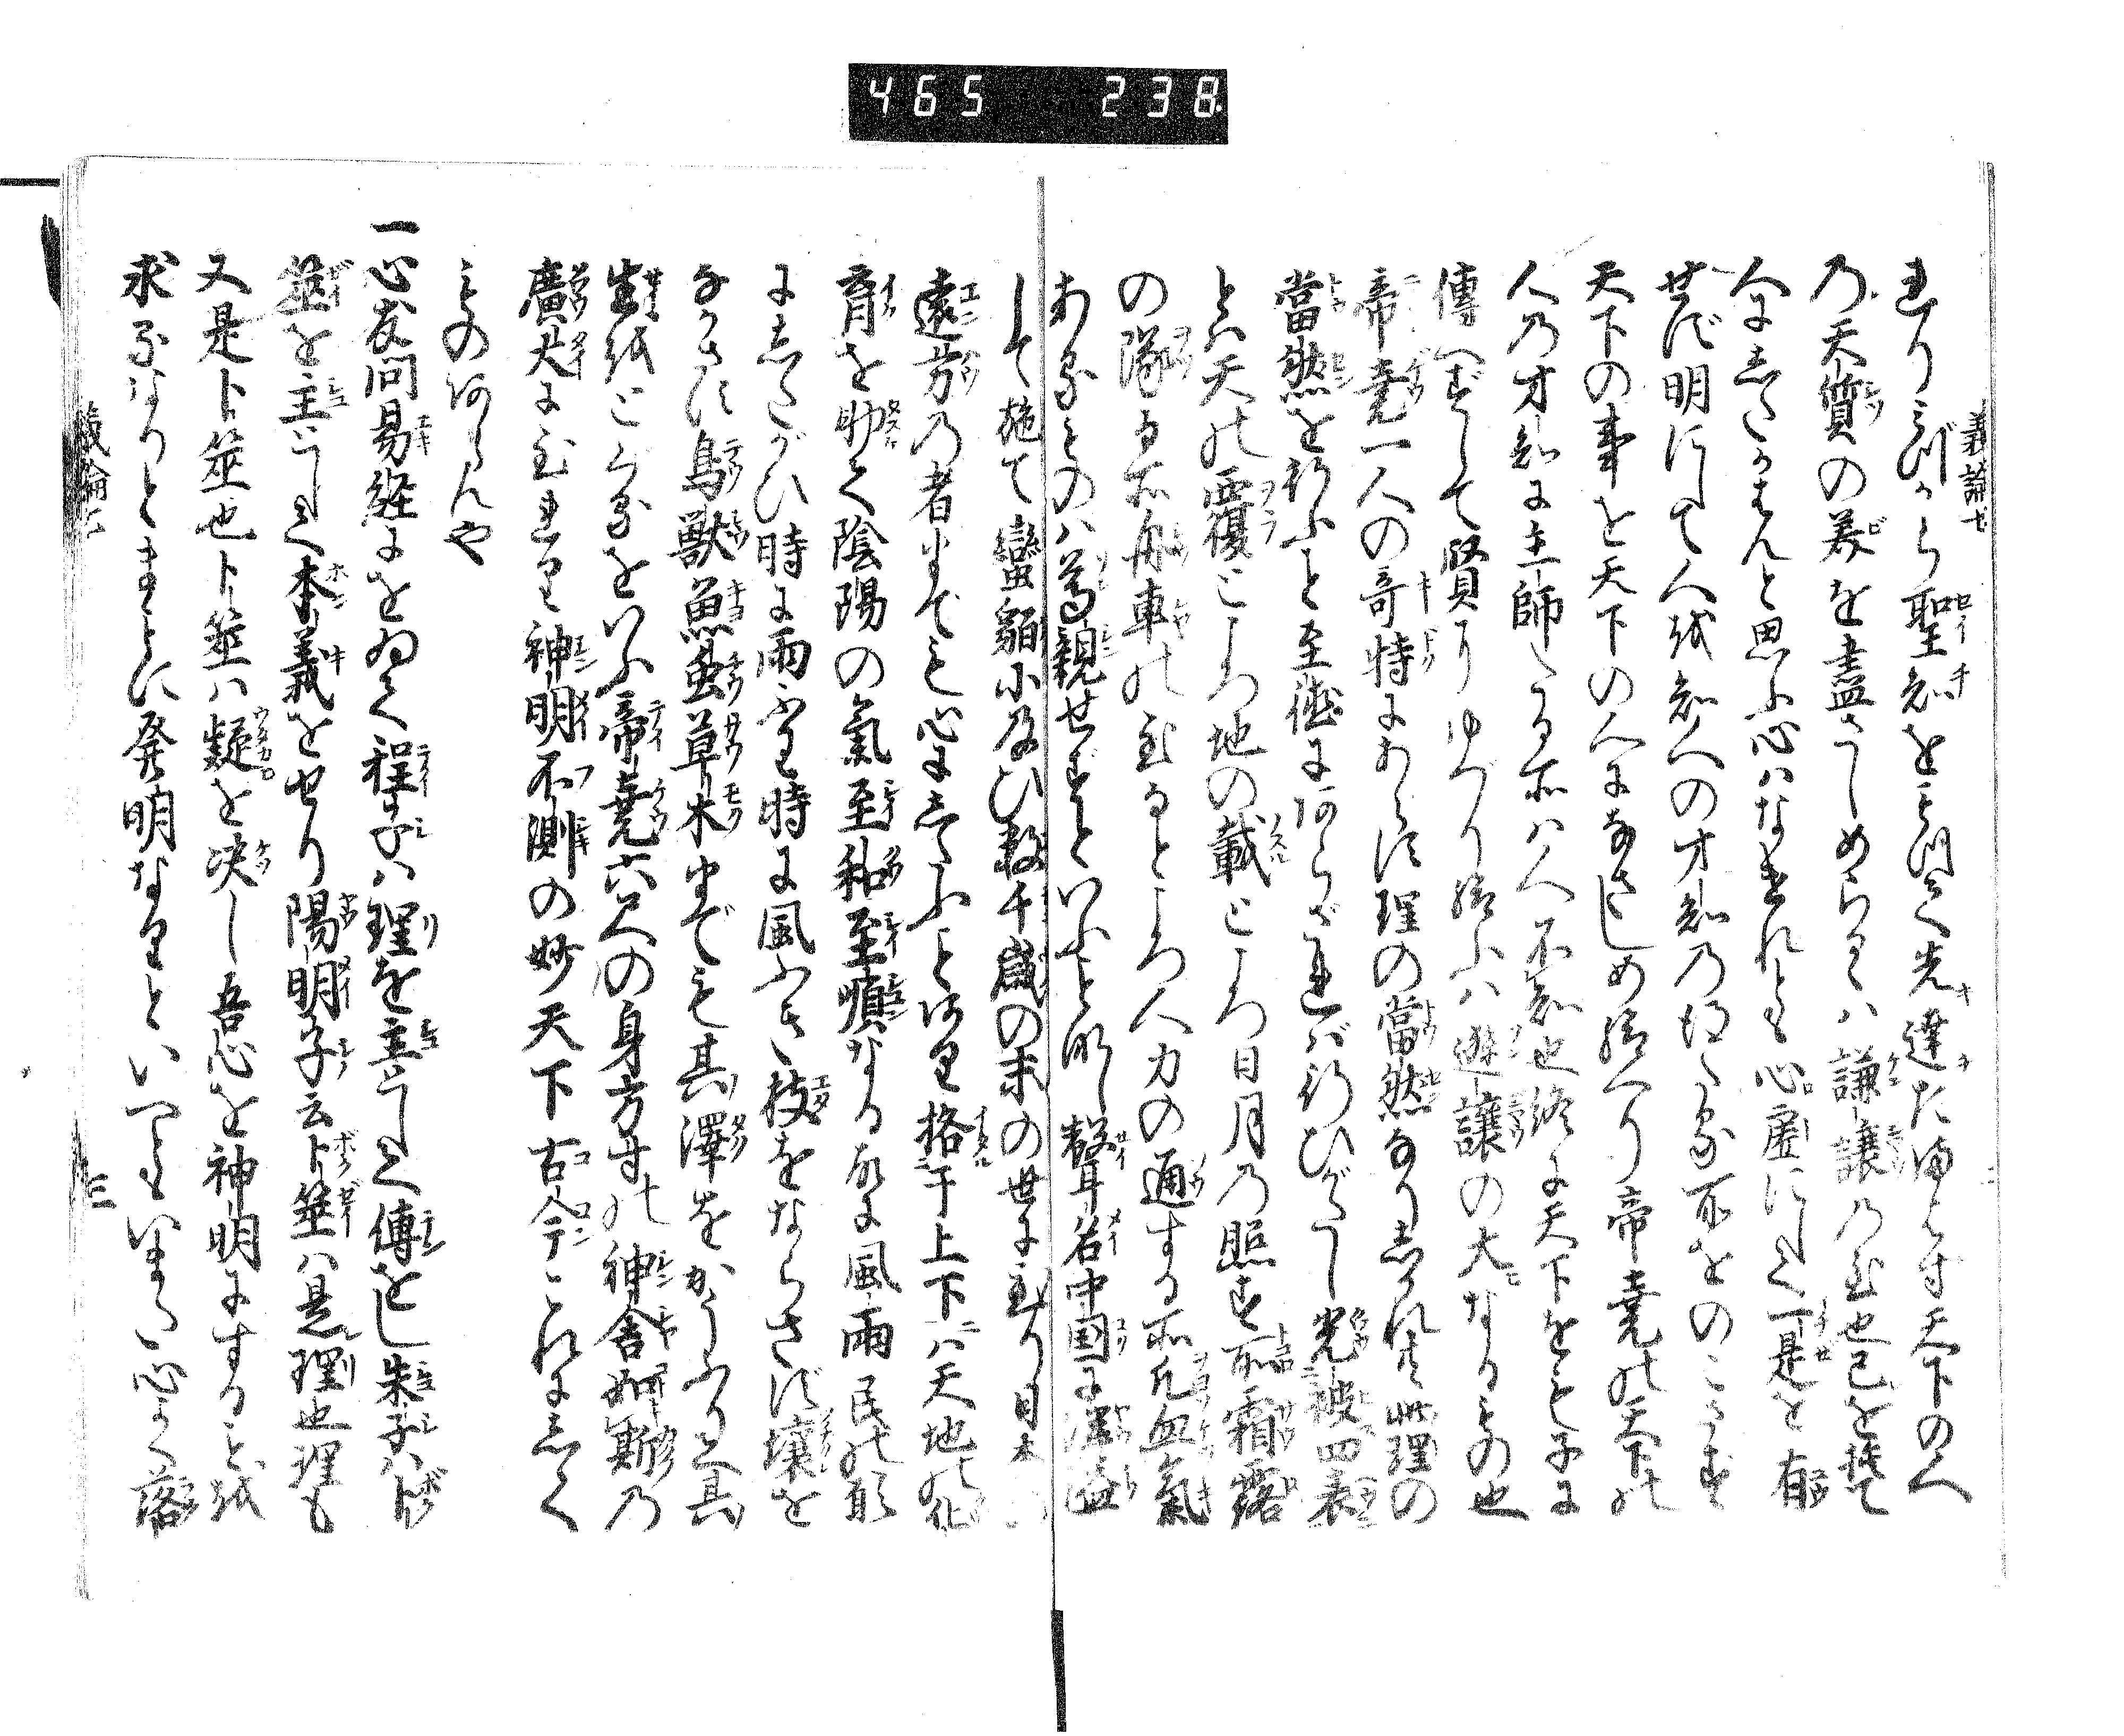 465 238
義論七
れりみづから聖知をもつて先達たまはす天下の人
乃天質の美を盡さしめらるゝハ謙讓乃至也己を捨て
人にしたかはんと思ふ心ハなけれとも心虚にして一是を有
せず明にして人を知人の才知乃ほかる所をのこさず
天下の事を天下の人になさしめ給へり帝堯の天下の
人乃才知に主師たる所ハ人不知也終に天下をも子に
傳へずして賢にゆづり給ふハ遜讓の大なるもの也
帝堯一人の奇特にあらず理の當然なりしかれ共此理の
當然を行ふと至德にあらざれば行ひがたし光被四表
とハ天の覆ところ地の載ところ日月乃照す所霜露
の隊る所舟車の至るところ人力の通する所凡血氣
あるものハ尊親せずといふと那し聲名中国に洋溢
して施て蠻貊に及ひ数千歳の末の世に至り日本
遠方乃者までも心にしたふとあり格于上下ハ天地の化
育を助く陰陽の氣至和至順なる故に風雨民の願
にしたがひ時に雨ふり時に風ふき枝をならさず壤を
うかさず鳥獸魚虫草木までも其澤をかうふりて其
生をとぐるをいふ帝堯六尺の身方寸の神舍如斯乃
廣大に至れり神明不測の妙天下古今これにしく
ものあらんや
一心友問易経にをゐて程子ハ理を主として傳をし朱子ハ卜
筮を主として本義をせり陽明子云卜筮ハ是理也理も
又是卜筮也卜筮ハ疑を决し吾心を神明にすることを
求るなりとまことに発明なりといへともいまた心よく落
議論七
三